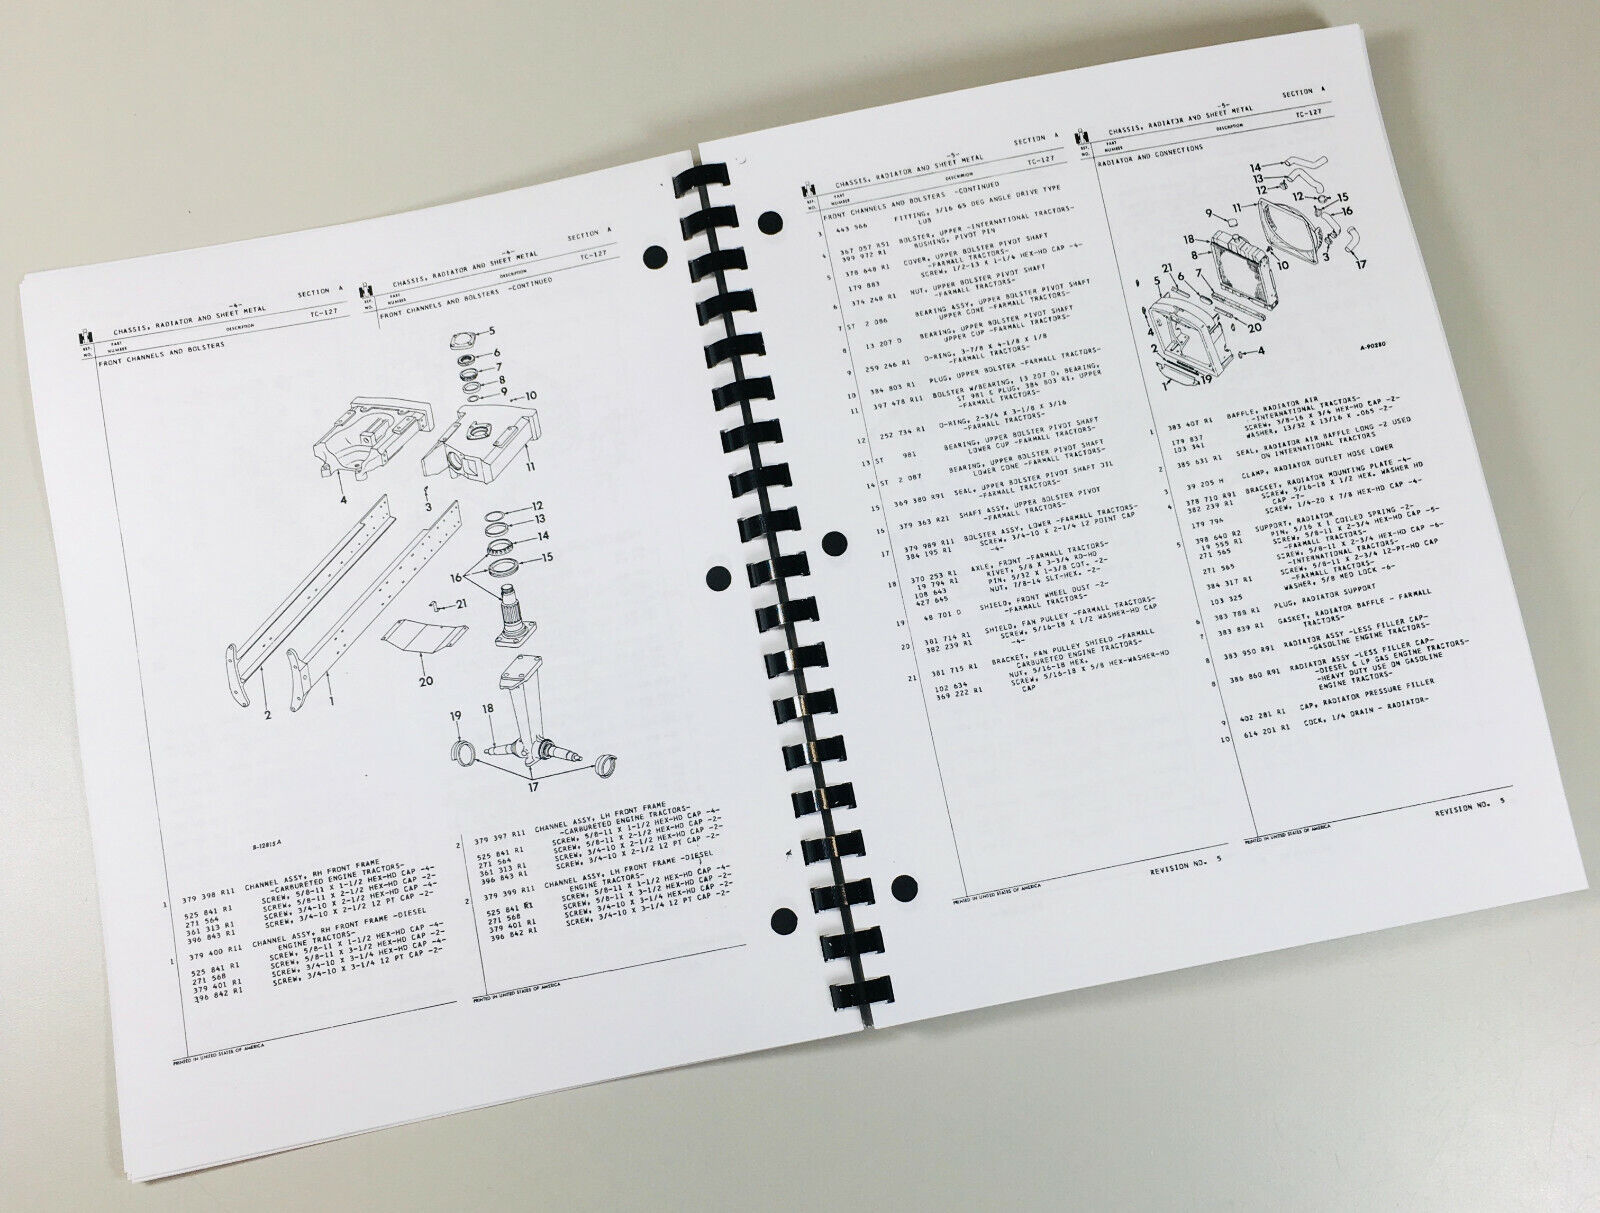 -4-
CHASSIS, RADIATOR AND SHEET METAL SECTION A
REF. NO. PART NUMBER DESCRIPTION TC-127
FRONT CHANNELS AND BOLSTERS
B-12815A
1 379 398 R11 CHANNEL ASSY, RH FRONT FRAME
-CARBURETED ENGINE TRACTORS-
525 841 R1 SCREW, 5/8-11 X 1-1/2 HEX-HD CAP -4-
271 564 SCREW, 5/8-11 X 2-1/2 HEX-HD CAP -2-
361 313 R1 SCREW, 3/4-10 X 2-1/2 HEX-HD CAP -2-
396 843 R1 SCREW, 3/4-10 X 2-1/2 12 PT CAP -2-
1 379 400 R11 CHANNEL ASSY, RH FRONT FRAME -DIESEL
ENGINE TRACTORS-
525 841 R1 SCREW, 5/8-11 X 1-1/2 HEX-HD CAP -4-
271 568 SCREW, 5/8-11 X 3-1/2 HEX-HD CAP -2-
379 401 R1 SCREW, 3/4-10 X 3-1/4 HEX-HD CAP -2-
396 842 R1 SCREW, 3/4-10 X 3-1/4 12 PT CAP -2-
PRINTED IN UNITED STATES OF AMERICA
-4-
CHASSIS, RADIATOR AND SHEET METAL SECTION A
REF. NO. PART NUMBER DESCRIPTION TC-127
FRONT CHANNELS AND BOLSTERS -CONTINUED
5
6
7
8
9
10
4
11
3
12
13
14
15
16
21
20
2
1
19
18
17
2 379 397 R11 CHANNEL ASSY, LH FRONT FRAME
-CARBURETED ENGINE TRACTORS-
525 841 R1 SCREW, 5/8-11 X 1-1/2 HEX-HD CAP -4-
271 564 SCREW, 5/8-11 X 2-1/2 HEX-HD CAP -2-
361 313 R1 SCREW, 3/4-10 X 2-1/2 HEX-HD CAP -2-
396 843 R1 SCREW, 3/4-10 X 2-1/2 12 PT CAP -2-
2 379 399 R11 CHANNEL ASSY, LH FRONT FRAME -DIESEL
ENGINE TRACTORS-
525 841 R1 SCREW, 5/8-11 X 1-1/2 HEX-HD CAP -4-
271 568 SCREW, 5/8-11 X 3-1/2 HEX-HD CAP -2-
379 401 R1 SCREW, 3/4-10 X 3-1/4 HEX-HD CAP -2-
396 842 R1 SCREW, 3/4-10 X 3-1/4 12 PT CAP -2-
PRINTED IN UNITED STATES OF AMERICA
-5-
CHASSIS, RADIATOR AND SHEET METAL SECTION A
REF. NO. PART NUMBER DESCRIPTION TC-127
FRONT CHANNELS AND BOLSTERS -CONTINUED
3 443 566 FITTING, 3/16 65 DEG ANGLE DRIVE TYPE
LUB
4 367 057 R51 BOLSTER, UPPER -INTERNATIONAL TRACTORS-
399 972 R1 BUSHING, PIVOT PIN
5 378 648 R1 COVER, UPPER BOLSTER PIVOT SHAFT
-FARMALL TRACTORS-
179 883 SCREW, 1/2-13 X 1-1/4 HEX-HD CAP -4-
6 374 248 R1 NUT, UPPER BOLSTER PIVOT SHAFT
-FARMALL TRACTORS-
7 ST 2 086 BEARING ASSY, UPPER BOLSTER PIVOT SHAFT
UPPER CONE -FARMALL TRACTORS-
8 13 207 D BEARING, UPPER BOLSTER PIVOT SHAFT
UPPER CUP -FARMALL TRACTORS-
9 259 246 R1 O-RING, 3-7/8 X 4-1/8 X 1/8
-FARMALL TRACTORS-
10 384 803 R1 PLUG, UPPER BOLSTER -FARMALL TRACTORS-
11 397 478 R11 BOLSTER W/BEARING, 13 207 D, BEARING,
ST 981 & PLUG, 384 803 R1, UPPER
-FARMALL TRACTORS-
12 252 734 R1 O-RING, 2-3/4 X 3-1/8 X 3/16
-FARMALL TRACTORS-
13 ST 981 BEARING, UPPER BOLSTER PIVOT SHAFT
LOWER CUP -FARMALL TRACTORS-
14 ST 2 087 BEARING, UPPER BOLSTER PIVOT SHAFT
LOWER CONE -FARMALL TRACTORS-
15 369 380 R91 SEAL, UPPER BOLSTER PIVOT SHAFT OIL
-FARMALL TRACTORS-
16 379 363 R21 SHAFT ASSY, UPPER BOLSTER PIVOT
-FARMALL TRACTORS-
17 379 989 R11 BOLSTER ASSY, LOWER -FARMALL TRACTORS-
384 195 R1 SCREW, 3/4-10 X 2-1/4 12 POINT CAP
-4-
18 370 253 R1 AXLE, FRONT -FARMALL TRACTORS-
19 794 R1 RIVET, 5/8 X 3-3/4 RD-HD
108 643 PIN, 5/32 X 1-3/8 COT. -2-
427 645 NUT, 7/8-14 SLT-HEX. -2-
19 48 701 D SHIELD, FRONT WHEEL DUST -2-
-FARMALL TRACTORS-
20 381 714 R1 SHIELD, FAN PULLEY -FARMALL TRACTORS-
382 239 R1 SCREW, 5/16-18 X 1/2 WASHER-HD CAP
-4-
21 381 715 R1 BRACKET, FAN PULLEY SHIELD -FARMALL
CARBURETED ENGINE TRACTORS-
102 634 NUT, 5/16-18 HEX.
369 222 R1 SCREW, 5/16-18 X 5/8 HEX-WASHER-HD
CAP
REVISION NO. 5
PRINTED IN UNITED STATES OF AMERICA
-5-
CHASSIS, RADIATOR AND SHEET METAL SECTION A
REF. NO. PART NUMBER DESCRIPTION TC-127
RADIATOR AND CONNECTIONS
14
13
12
12
15
16
11
9
18
8
10
3
17
21
5
6
7
20
4
2
4
1
19
A-90280
1 383 407 R1 BAFFLE, RADIATOR AIR
-INTERNATIONAL TRACTORS-
179 837 SCREW, 3/8-16 X 3/4 HEX-HD CAP -2-
103 341 WASHER, 13/32 X 13/16 X .065 -2-
2 385 631 R1 SEAL, RADIATOR AIR BAFFLE LONG -2 USED
ON INTERNATIONAL TRACTORS
3 39 205 H CLAMP, RADIATOR OUTLET HOSE LOWER
4 378 710 R91 BRACKET, RADIATOR MOUNTING PLATE -4-
382 239 R1 SCREW, 5/16-18 X 1/2 HEX. WASHER HD
CAP -7-
179 796 SCREW, 1/4-20 X 7/8 HEX-HD CAP -4-
5 398 640 R2 SUPPORT, RADIATOR
19 555 R1 PIN, 5/16 X 1 COILED SPRING -2-
271 565 SCREW, 5/8-11 X 2-3/4 HEX-HD CAP -5-
-FARMALL TRACTORS-
271 565 SCREW, 5/8-11 X 2-3/4 HEX-HD CAP -6-
-INTERNATIONAL TRACTORS-
384 317 R1 SCREW, 5/8-11 X 2-3/4 12-PT-HD CAP
-FARMALL TRACTORS-
103 325 WASHER, 5/8 MED LOCK -6-
6 383 788 R1 PLUG, RADIATOR SUPPORT
7 383 839 R1 GASKET, RADIATOR BAFFLE - FARMALL
TRACTORS-
8 383 950 R91 RADIATOR ASSY -LESS FILLER CAP-
-GASOLINE ENGINE TRACTORS-
8 386 860 R91 RADIATOR ASSY -LESS FILLER CAP-
-DIESEL & LP GAS ENGINE TRACTORS-
-HEAVY DUTY USE ON GASOLINE
ENGINE TRACTORS-
9 402 281 R1 CAP, RADIATOR PRESSURE FILLER
10 614 201 R1 COCK, 1/4 DRAIN - RADIATOR-
REVISION NO. 5
PRINTED IN UNITED STATES OF AMERICA